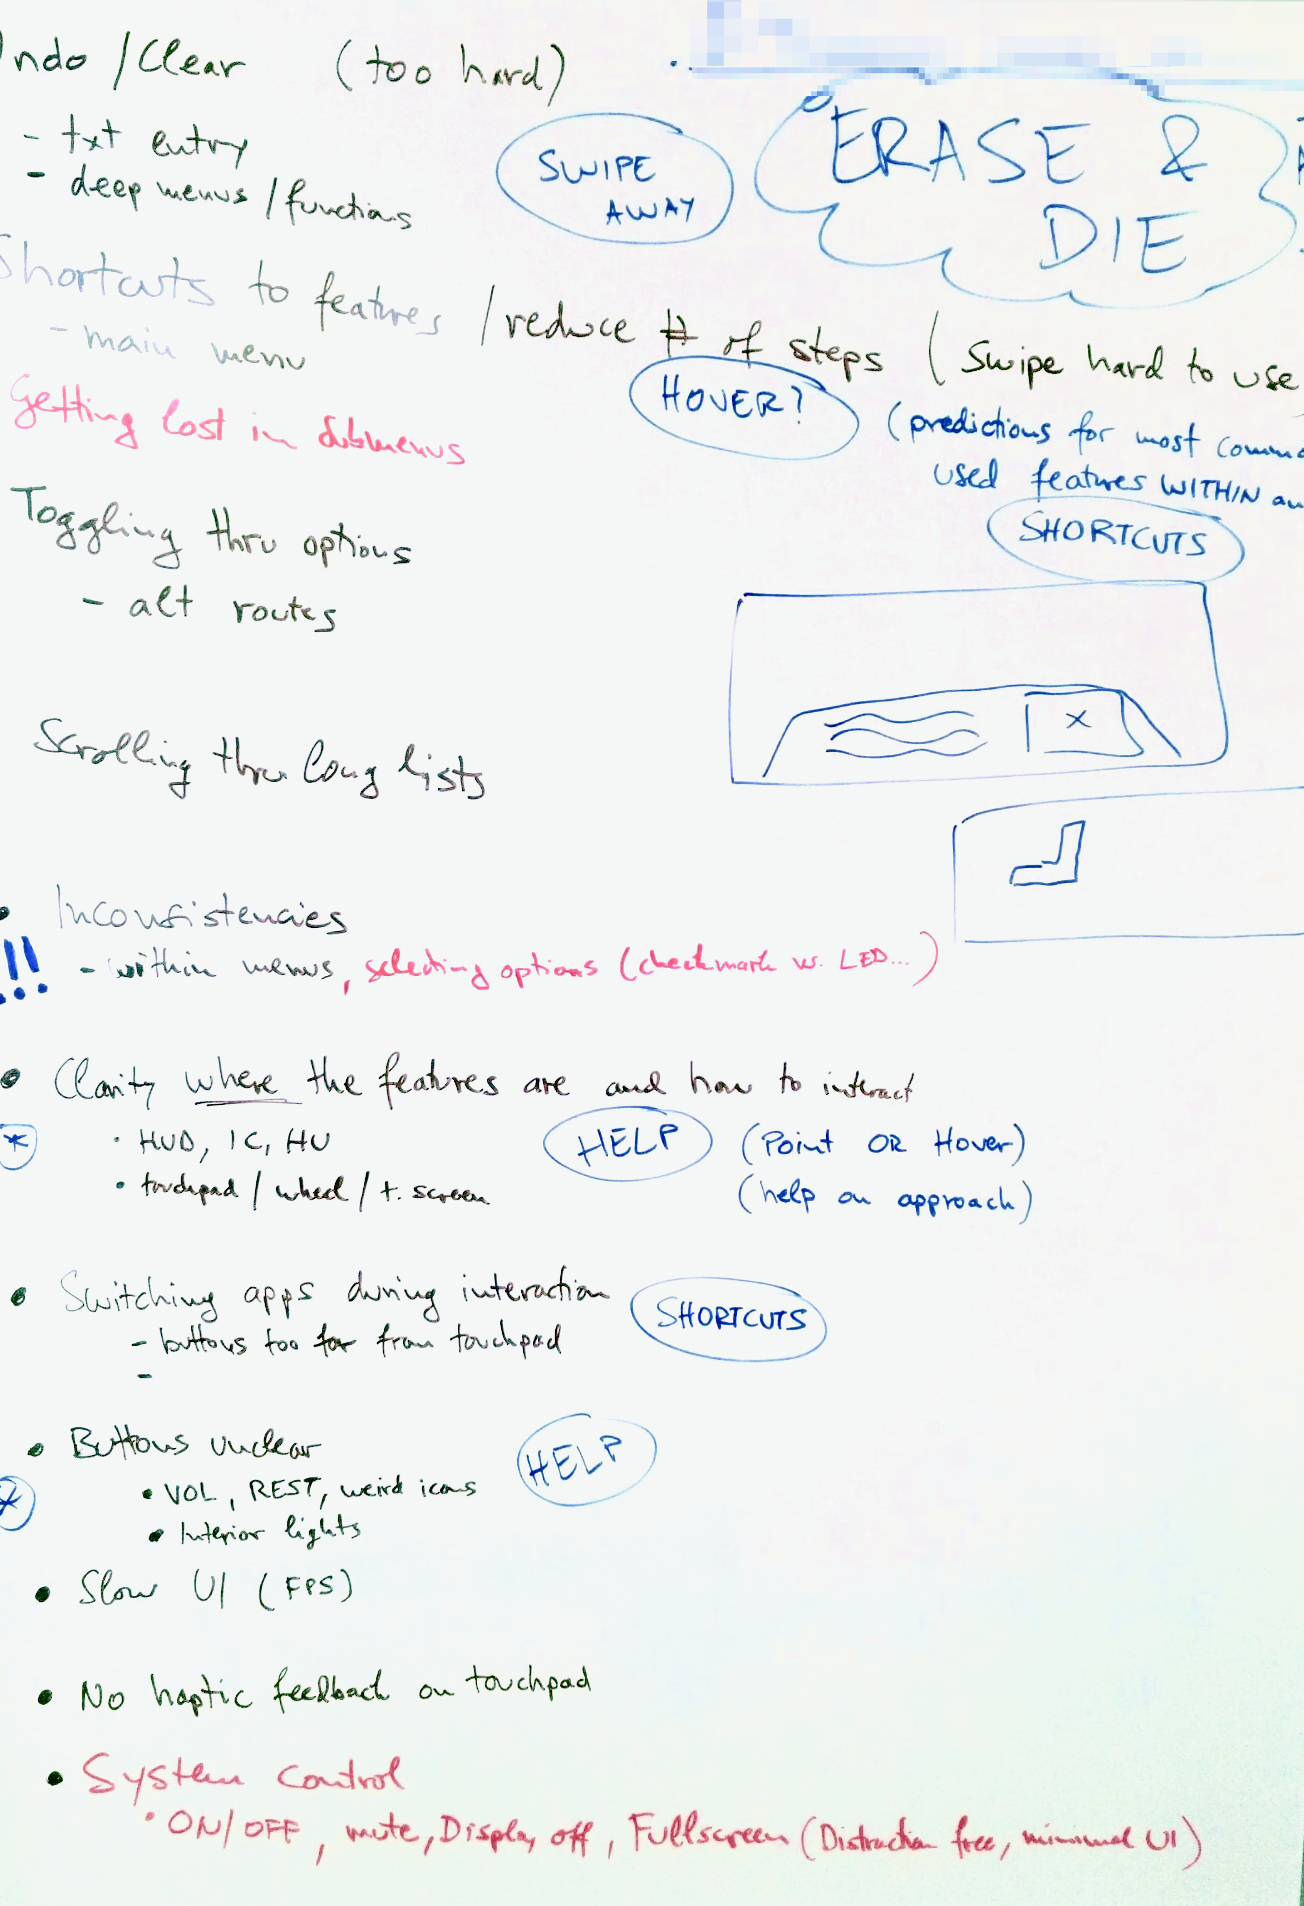 Undo / Clear (too hard)
- txt entry
- deep menus / functions
SWIPE
AWAY
ERASE &
DIE
Shortcuts to features / reduce # of steps (Swipe hard to use)
- main menu
HOVER?
(predictions for most
used features WITHIN
SHORTCUTS
Getting lost in submenus
Toggling thru options
- alt routes
X
Scrolling thru long lists
• Inconsistencies
!!! - within menus, selecting options (checkmark vs. LED...)
• Clarity where the features are and how to interact
* • HUD, IC, HU
• touchpad / wheel / t. screen
HELP (Point OR Hover)
(help on approach)
• Switching apps during interaction
- buttons too far from touchpad
-
SHORTCUTS
• Buttons unclear
HELP
* • VOL, REST, weird icons
• Interior lights
• Slow UI (FPS)
• No haptic feedback on touchpad
• System control
• ON/OFF, mute, Display off, Fullscreen (Distraction free, minimal UI)